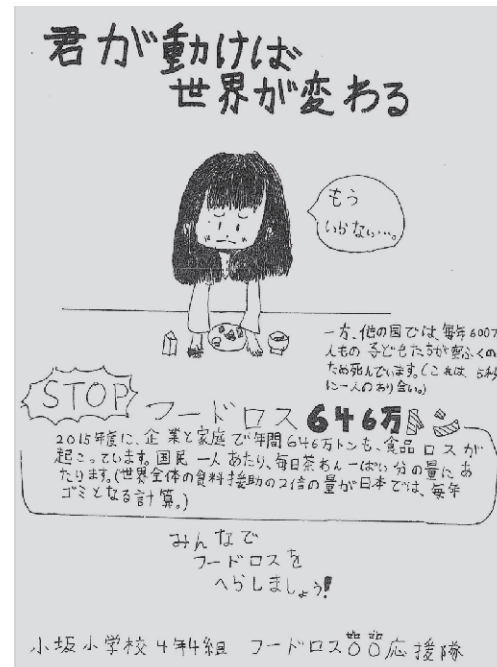 君が動けば
世界が変わる
もう
いらない…。
一方、他の国では、毎年600万
人もの子どもたちが空ふくの
ため死んでいます。(これは、5秒
に一人のわり合い。)
STOP フードロス 646万トン
2015年度に、企業と家庭で年間646万トンも、食品ロスが
起こっています。国民一人あたり、毎日茶わん一ぱい分の量にあ
たります。(世界全体の食料援助の2倍の量が日本では、毎年
ゴミとなる計算。)
みんなで
フードロスを
へらしましょう!
小坂小学校4年4組 フードロス 応援隊